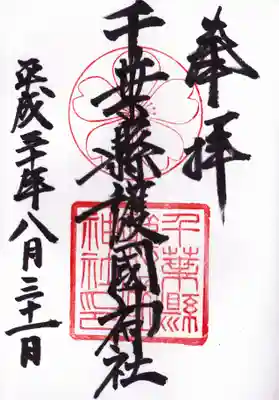 奉拝
千葉縣護國神社
平成二十年八月三十一日
千葉縣
神社印